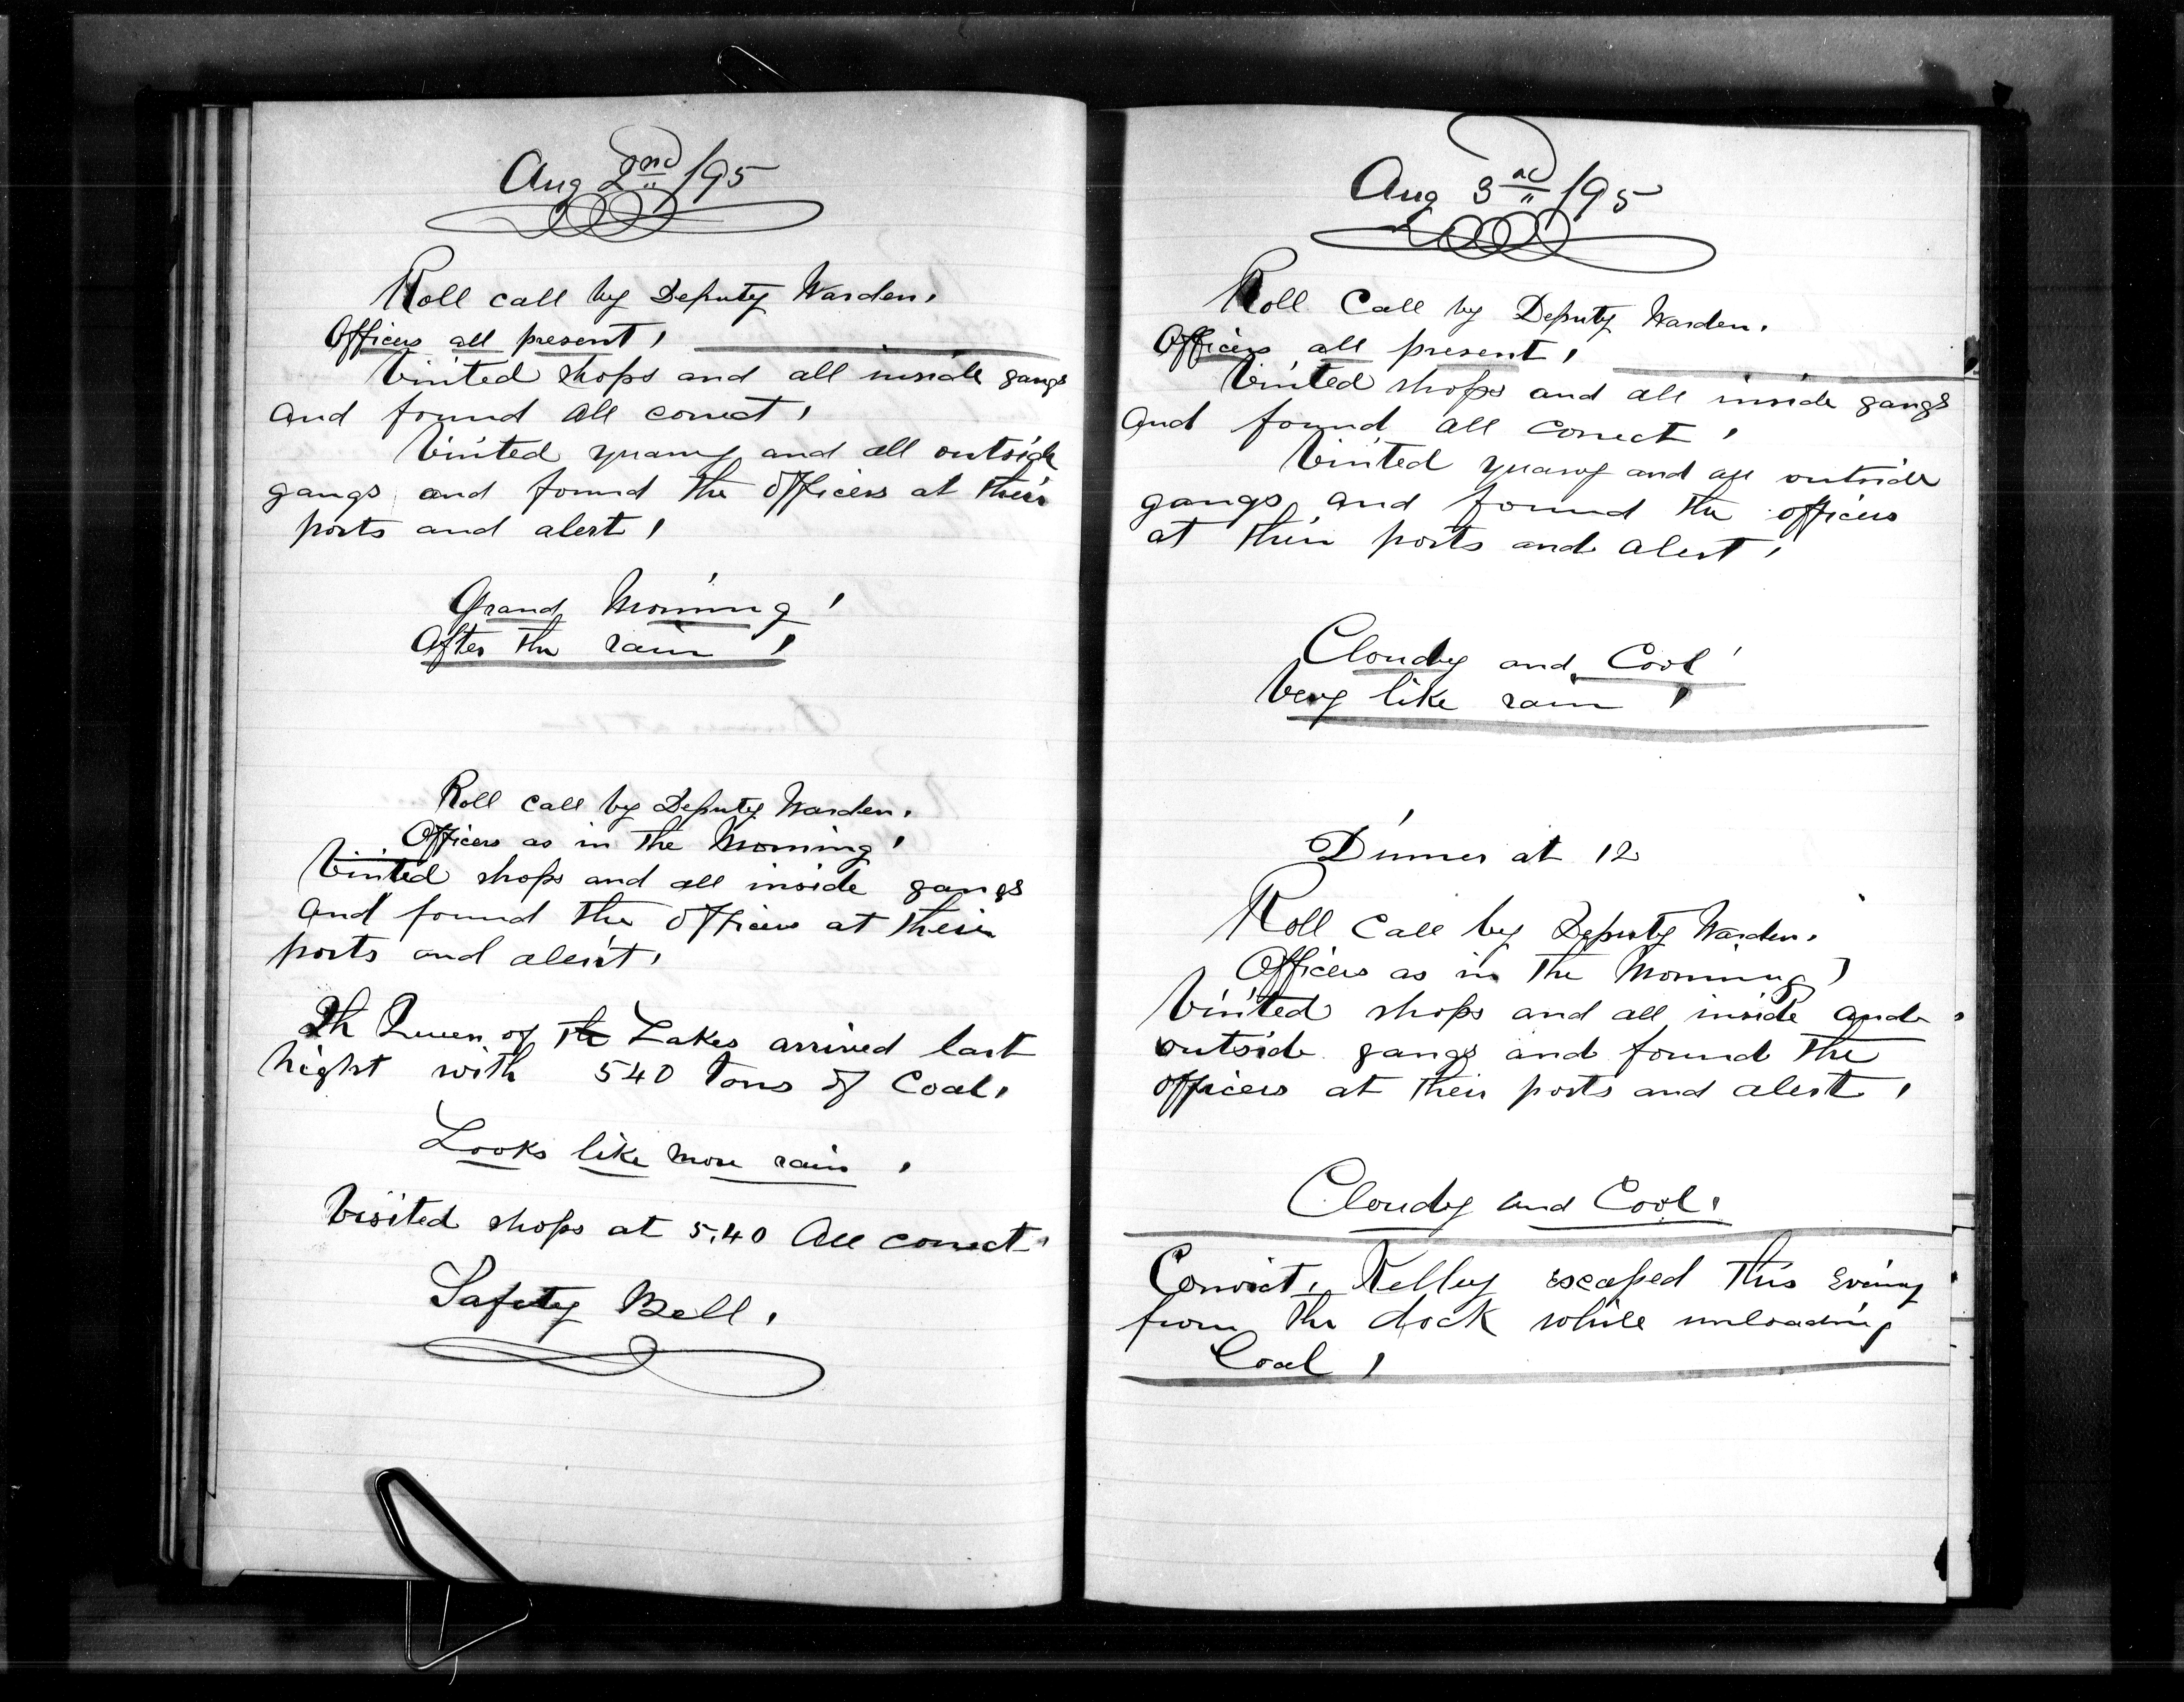 Aug 2nd /95
Roll call by Deputy Warden.
Officers all present,
Visited shops and all inside gangs
and found all correct,
Visited quarry and all outside
gangs and found the officers at their
posts and alert,
Grand Morning,
After the rain,
Roll call by Deputy Warden.
Officers as in the Morning,
Visited shops and all inside gangs
and found the officers at their
posts and alert,
Th Queen of the Lakes arrived last
night with 540 tons of Coal,
Looks like more rain,
Visited shops at 5.40 All correct,
Safety Bell,
Aug 3rd /95
Roll Call by Deputy Warden.
Officers all present,
Visited shops and all inside gangs
and found all correct,
Visited quarry and all outside
gangs and found the officers
at their posts and alert,
Cloudy and Cool
Very like rain,
Dinner at 12
Roll Call by Deputy Warden.
Officers as in the Morning,
Visited shops and all inside and
outside gangs and found the
officers at their posts and alert,
Cloudy and Cool,
Convict, Kelley escaped this Evening
from the dock while unloading
Coal,